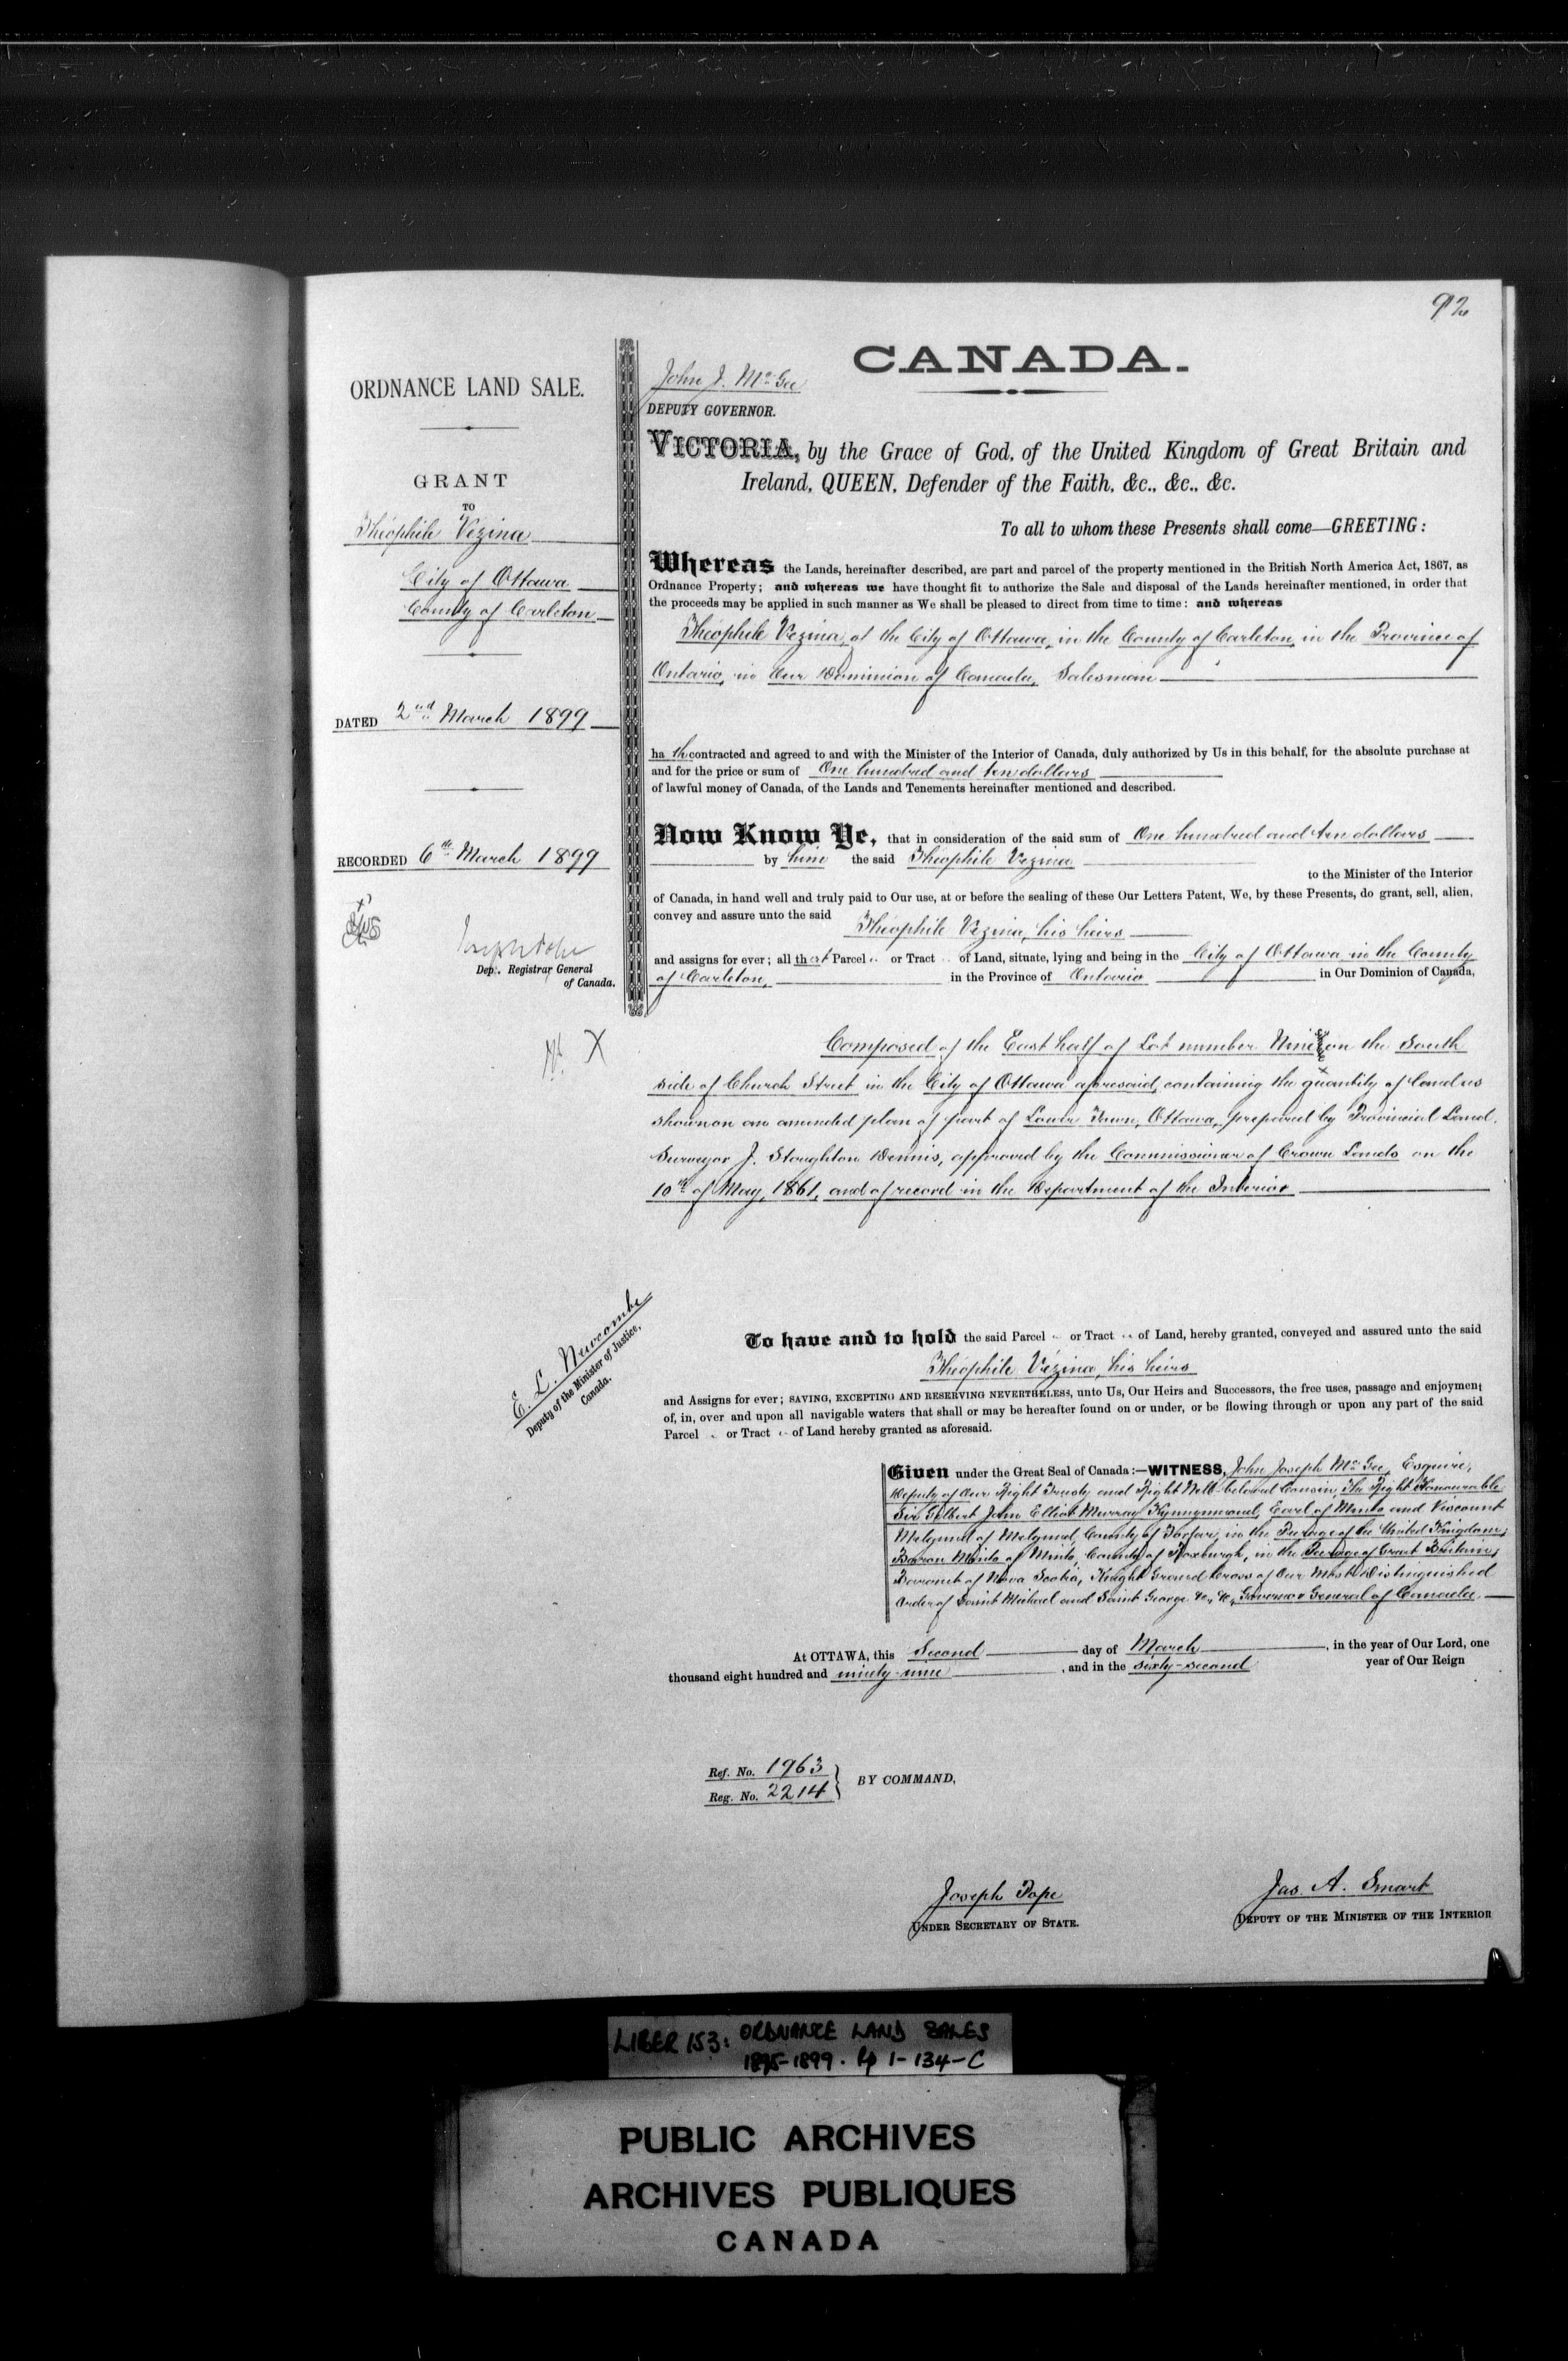 92
ORDNANCE LAND SALE.
GRANT
TO
Théophile Vezina
City of Ottawa
County of Carleton
DATED 2nd March 1899
RECORDED 6th March 1899
Joseph Pope
Dep. Registrar General
of Canada.
X
E. L. Newcombe
Deputy of the Minister of Justice,
Canada.
CANADA.
John J. McGee
DEPUTY GOVERNOR.
VICTORIA, by the Grace of God, of the United Kingdom of Great Britain and
Ireland, QUEEN, Defender of the Faith, &c., &c., &c.
To all to whom these Presents shall come—GREETING:
Whereas the Lands, hereinafter described, are part and parcel of the property mentioned in the British North America Act, 1867, as
Ordnance Property; and whereas we have thought fit to authorize the Sale and disposal of the Lands hereinafter mentioned, in order that
the proceeds may be applied in such manner as We shall be pleased to direct from time to time: and whereas
Théophile Vezina, of the City of Ottawa, in the County of Carleton, in the Province of
Ontario, in Our Dominion of Canada, Salesman
hath contracted and agreed to and with the Minister of the Interior of Canada, duly authorized by Us in this behalf, for the absolute purchase at
and for the price or sum of One hundred and ten dollars
of lawful money of Canada, of the Lands and Tenements hereinafter mentioned and described.
Now Know Ye, that in consideration of the said sum of One hundred and ten dollars
by him the said Théophile Vezina
to the Minister of the Interior
of Canada, in hand well and truly paid to Our use, at or before the sealing of these Our Letters Patent, We, by these Presents, do grant, sell, alien,
convey and assure unto the said Théophile Vezina, his heirs
and assigns for ever; all that Parcel or Tract of Land, situate, lying and being in the City of Ottawa in the County
of Carleton, in the Province of Ontario in Our Dominion of Canada,
Composed of the East half of Lot number Nine on the South
side of Church Street in the City of Ottawa aforesaid, containing the quantity of land as
shown on an amended plan of part of Lower Town, Ottawa, prepared by Provincial Land
Surveyor J. Stoughton Dennis, approved by the Commissioner of Crown Lands on the
10th of May, 1861, and of record in the Department of the Interior
To have and to hold the said Parcel or Tract of Land, hereby granted, conveyed and assured unto the said
Théophile Vezina, his heirs
and Assigns for ever; SAVING, EXCEPTING AND RESERVING NEVERTHELESS, unto Us, Our Heirs and Successors, the free uses, passage and enjoyment
of, in, over and upon all navigable waters that shall or may be hereafter found on or under, or be flowing through or upon any part of the said
Parcel or Tract of Land hereby granted as aforesaid.
Given under the Great Seal of Canada:—WITNESS, John Joseph McGee, Esquire,
Deputy of Our Right Trusty and Right Well-beloved Cousin, The Right Honourable
Sir Gilbert John Elliot Murray Kynynmound, Earl of Minto and Viscount
Melgund of Melgund, County of Forfar, in the Peerage of the United Kingdom,
Baron Minto of Minto, County of Roxburgh, in the Peerage of Great Britain,
Baronet of Nova Scotia, Knight Grand Cross of Our Most Distinguished
Order of Saint Michael and Saint George &c., &c., Governor General of Canada.
At OTTAWA, this Second day of March, in the year of Our Lord, one
thousand eight hundred and ninety-nine, and in the sixty-second year of Our Reign
Ref. No. 1963
Reg. No. 2214
BY COMMAND,
Joseph Pope
UNDER SECRETARY OF STATE.
Jas. A. Smart
DEPUTY OF THE MINISTER OF THE INTERIOR
LIBER 153: ORDNANCE LAND SALES
1895-1899. Pp 1-134-C
PUBLIC ARCHIVES
ARCHIVES PUBLIQUES
CANADA